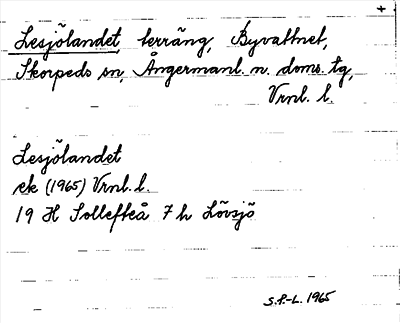 +
Lesjölandet, terräng, Byvattnet,
Skorpeds sn, Ångermanl. n. doms. tg,
Vrnl. l.
Lesjölandet
ek (1965) Vrnl. l.
19 H Sollefteå 7 h Lövsjö
S.P.-L. 1965